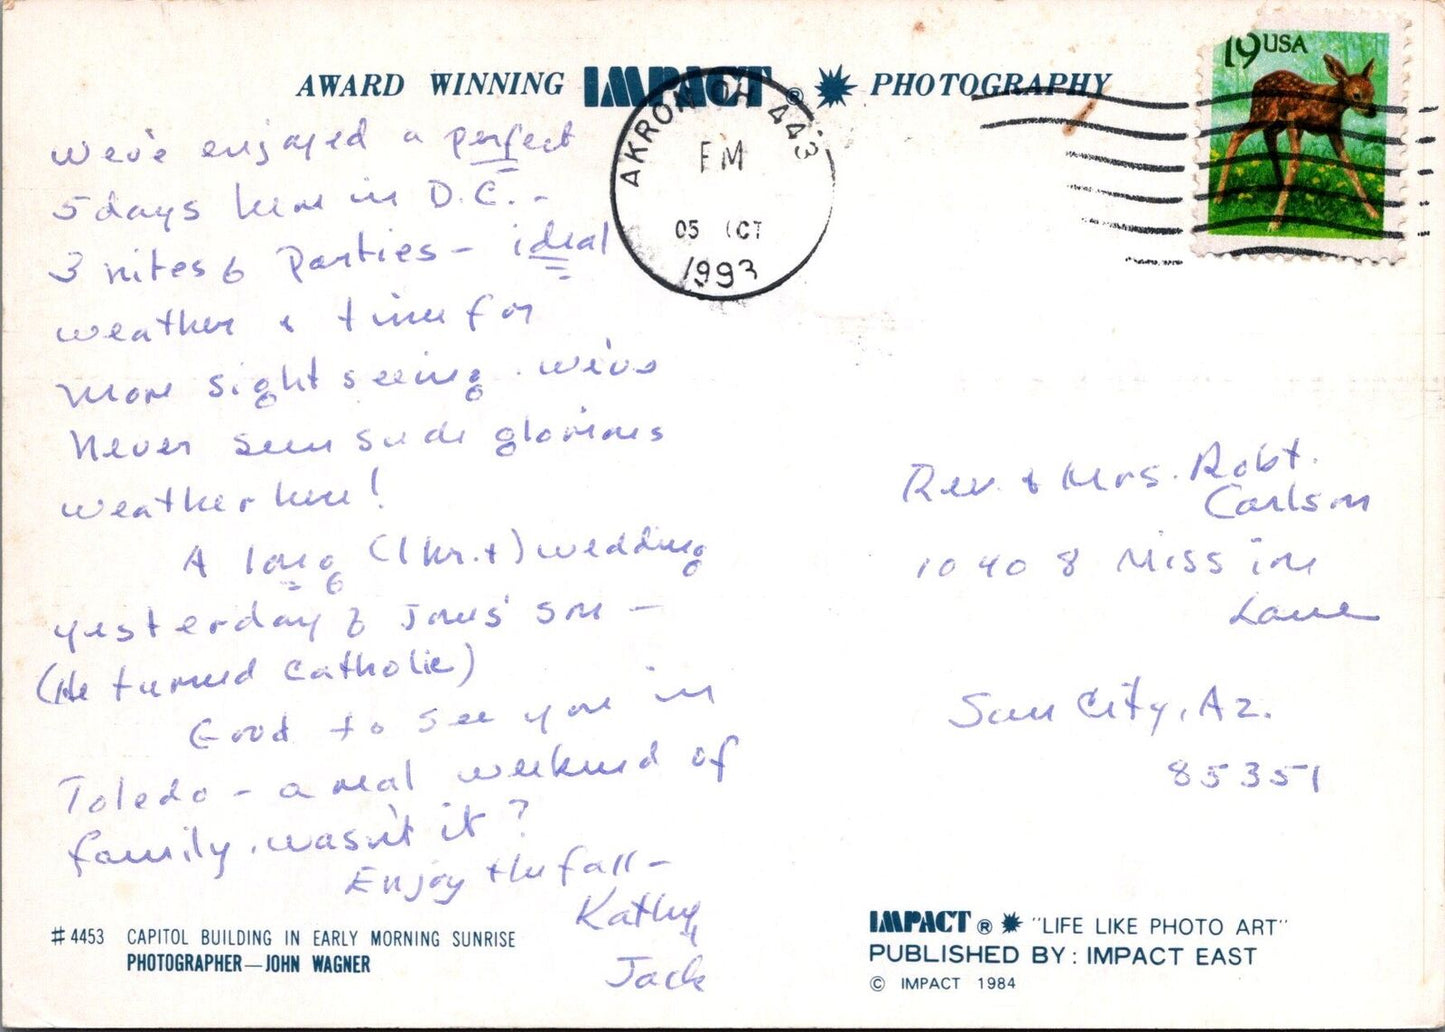 AWARD WINNING IMPACT® PHOTOGRAPHY
19 USA
AKRON OH 443
PM
05 OCT
1993
We've enjoyed a perfect
5 days here in D.C. -
3 nites 6 Parties - ideal
weather & time for
more sightseeing. We've
never seen such glorious
weather here!
A long (1 hr. +) wedding
yesterday of Jones' son -
(He turned Catholic)
Good to see you in
Toledo - a real weekend of
family, wasn't it?
Enjoy the fall -
Kathy
Jack
Rev. & Mrs. Robt.
Carlson
10408 Mission
Lane
Sun City, Az.
85351
#4453 CAPITOL BUILDING IN EARLY MORNING SUNRISE
PHOTOGRAPHER—JOHN WAGNER
IMPACT® "LIFE LIKE PHOTO ART"
PUBLISHED BY: IMPACT EAST
© IMPACT 1984